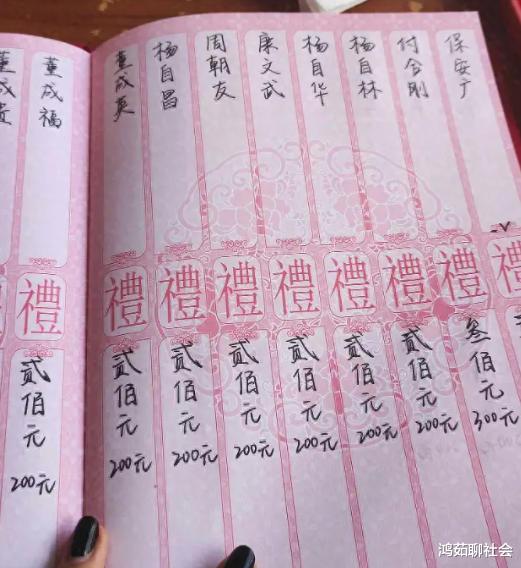 保安广
付合刚
杨自林
杨自华
康文武
周朝友
杨自昌
董成英
董成福
董成贵
禮
禮
禮
禮
禮
禮
禮
禮
叁佰元
300元
贰佰元
200元
贰佰元
200元
贰佰元
200元
贰佰元
200元
贰佰元
200元
贰佰元
200元
贰佰元
200元
鸿茹聊社会